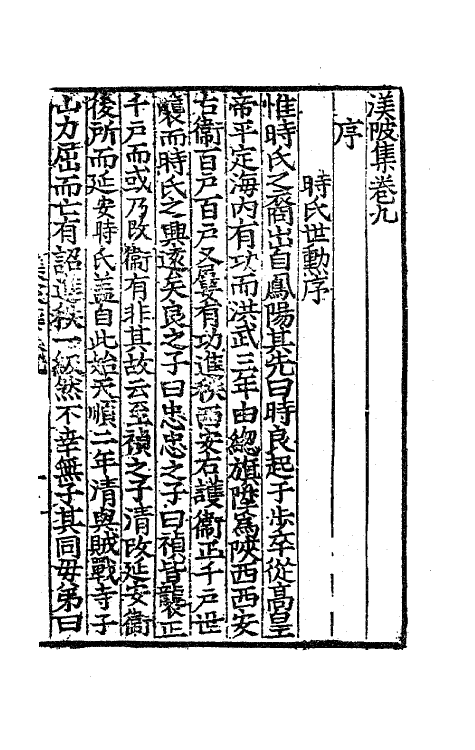 渼陂集卷九
序
時氏世勳序
惟時氏之裔出自鳳陽其先曰時良起于步卒從高皇
帝平定海内有功而洪武三年由總旗陞爲陜西西安
右衞百戸百戸又屢有功進秩西安右護衞正千戸世
襲而時氏之興遠矣良之子曰忠忠之子曰禎皆襲正
千戸而或乃改衞有非其故云至禎之子清改延安衞
後所而延安時氏蓋自此始天順二年清與賊戰寺子
山力屈而亡有詔進秩一級然不幸無子其同毋弟曰